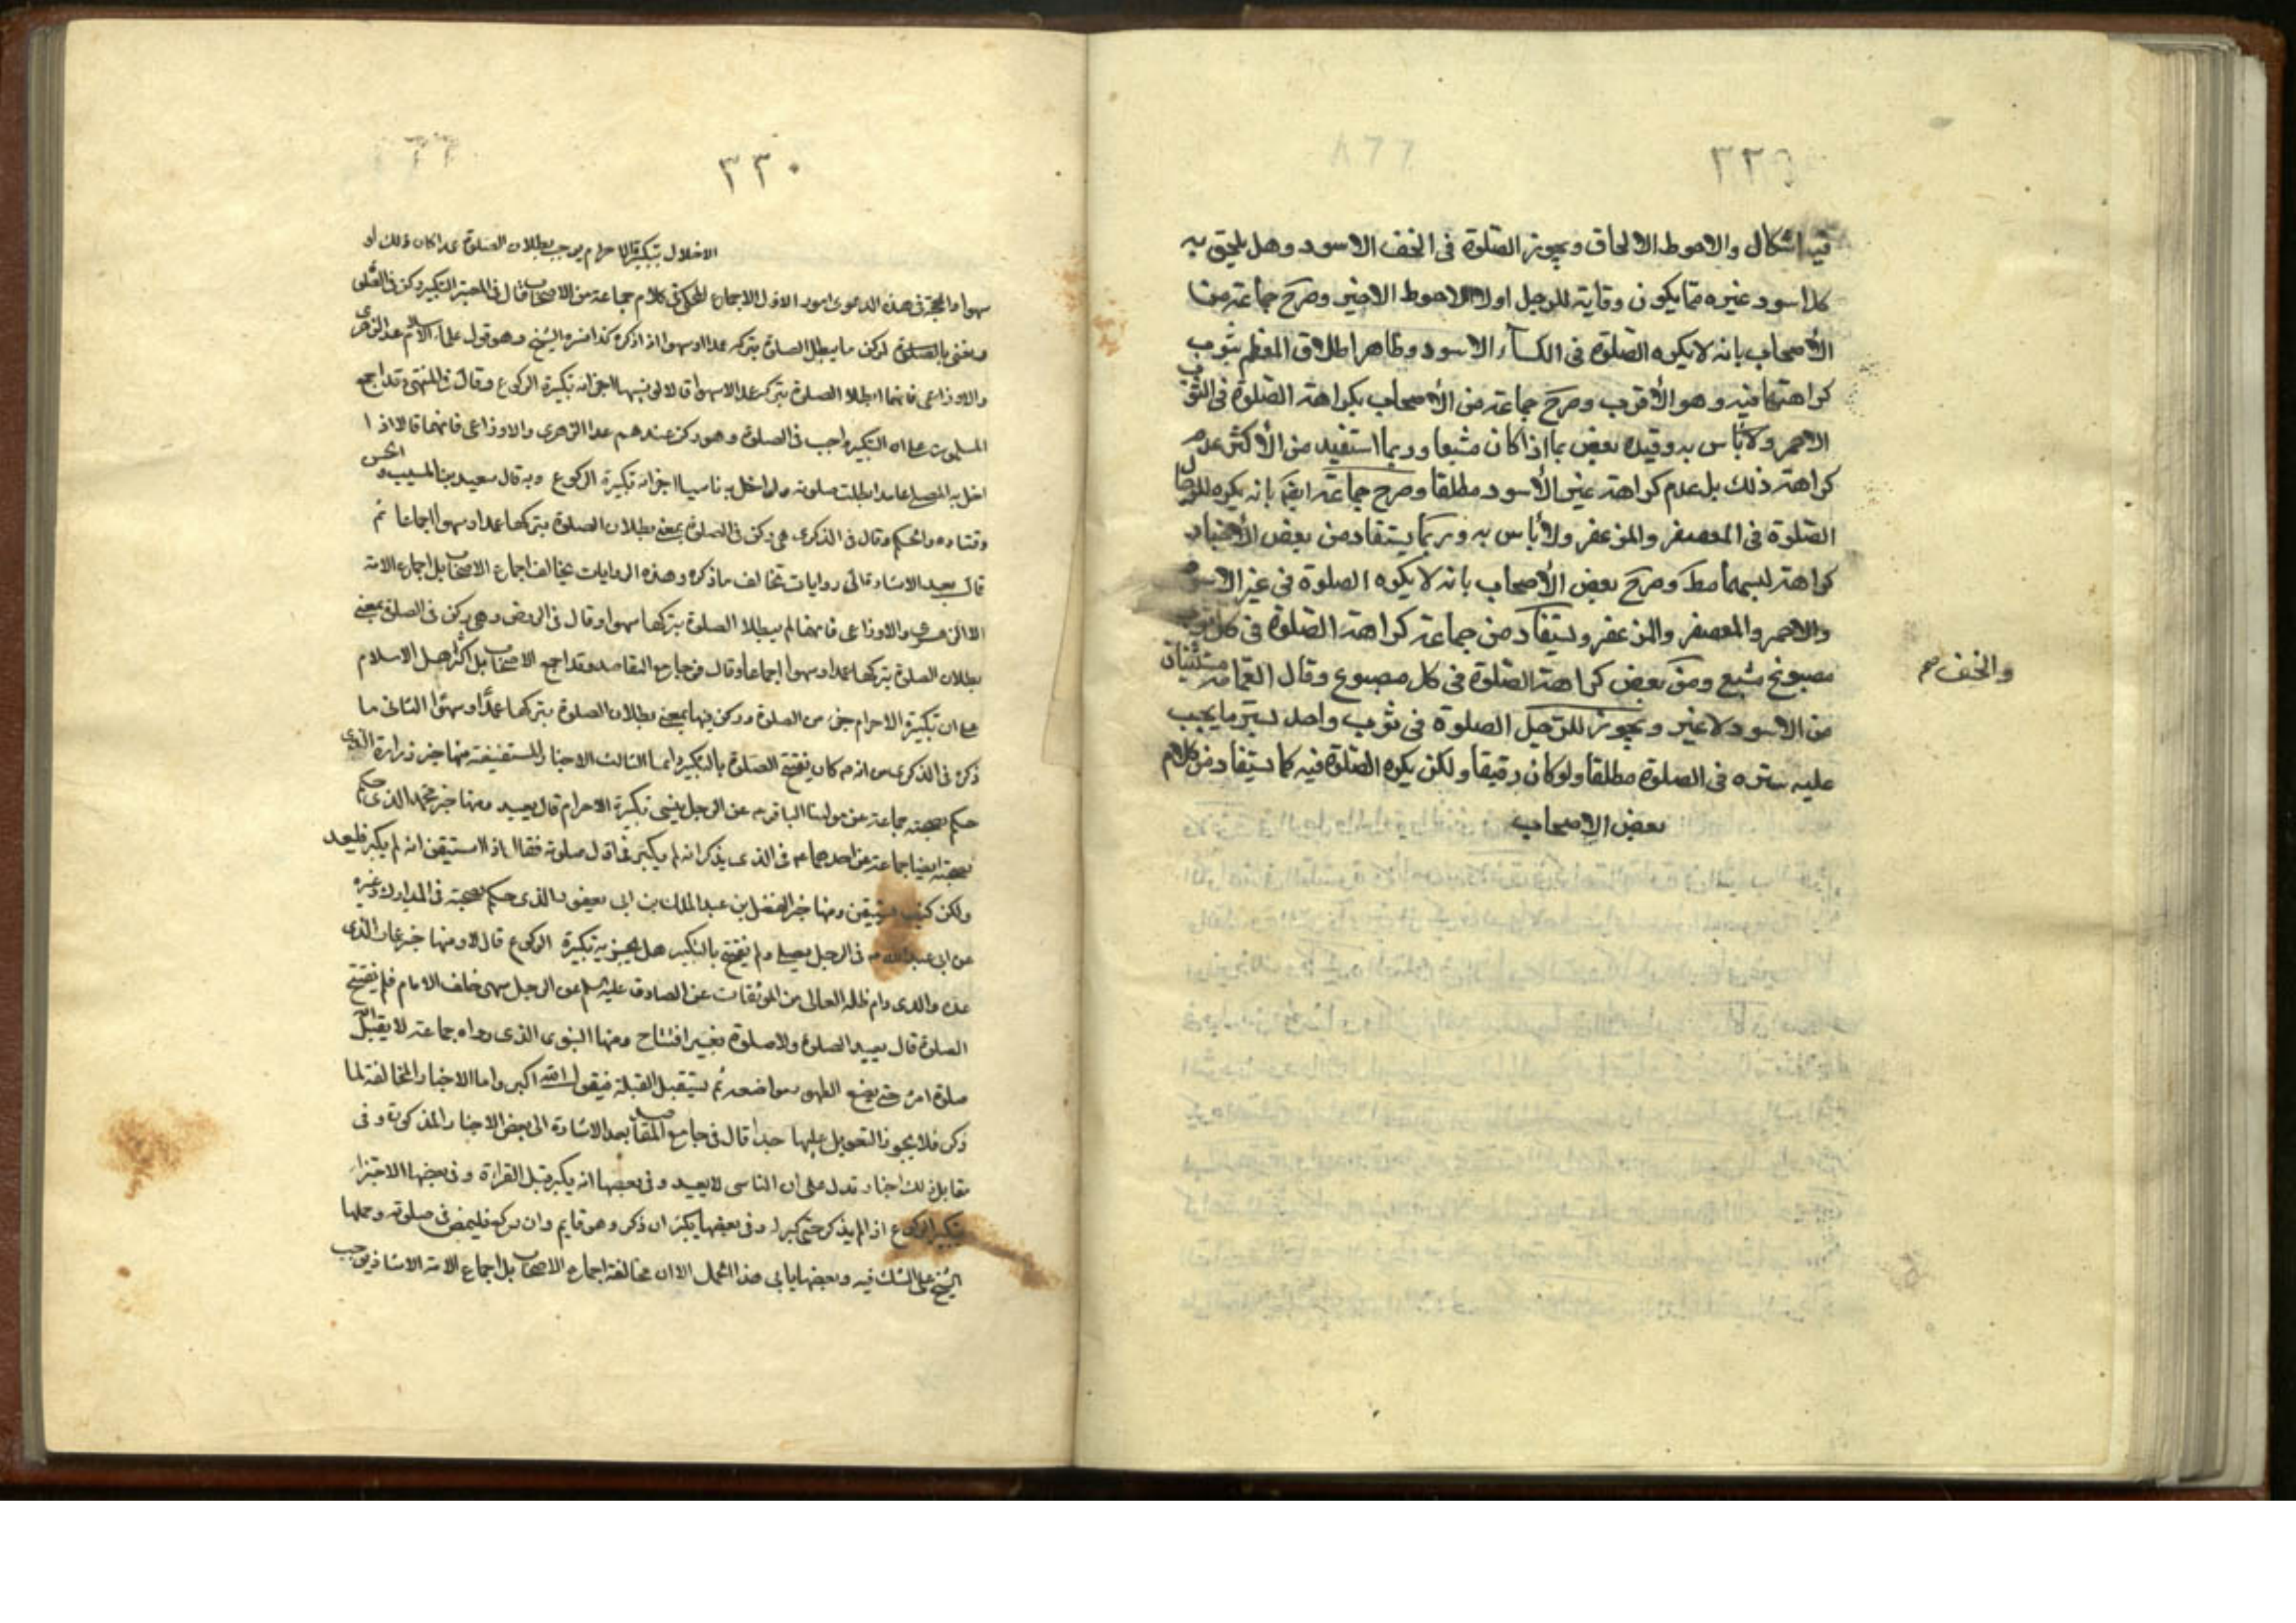 ٣٢٩
فيه اشكال والاحوط الالحاق ويجوز الصلوة فى الخف الاسود وهل يلحق به
كل اسود غيره مما يكون وقاية للرجل اولا الاحوط الاخير وصرح جماعة من
الأصحاب بانه لا يكره الصلوة فى الكساء الاسود وظاهر اطلاق المعظم ثبوت
كراهتها فيه وهو الأقرب وصرح جماعة من الأصحاب بكراهة الصلوة فى الثوب
الاحمر ولا بأس به وقيده بعض بما اذا كان مشبعا وربما استفيد من الأكثر عدم
كراهة ذلك بل عدم كراهة غير الأسود مطلقا وصرح جماعة ايضا بانه يكره للرجال
الصلوة فى المعصفر والمزعفر ولا بأس به وربما يستفاد من بعض الأخبار
كراهة لبسهما مط وصرح بعض الأصحاب بانه لا يكره الصلوة فى غير الاسود
والاحمر والمعصفر والمزعفر ويستفاد من جماعة كراهة الصلوة فى كل ثوب
مصبوغ مشبع وعن بعض كراهة الصلوة فى كل مصبوغ وقال العمامة مستثناة
والخف صح
من الاسود لا غير ويجوز للرجل الصلوة فى ثوب واحد يستر ما يجب
عليه ستره فى الصلوة مطلقا ولو كان رقيقا ولكن يكره الصلوة فيه كما يستفاد من كلام
بعض الاصحاب
٣٣٠
الاخلال بتكبيرة الاحرام يوجب بطلان الصلوة عمدا كان ذلك او
سهوا والحجة فى هذه الدعوى امور الاول الاجماع المحكى فى كلام جماعة من الاصحاب قال فى المعتبر التكبير ركن فى الصلوة
ونعنى بالركن ما يبطل الصلوة بتركه عمدا او سهوا اذا ذكره كذا فسره الشيخ وهو قول علماء الاسلام عدا الزهرى
والاوزاعى فانهما ابطلا الصلوة بتركه عمدا لا سهوا قالا لو نسيها اجزاته تكبيرة الركوع وقال فى المنتهى وقد اجمع
المسلمون على ان التكبير واجب فى الصلوة وهو ركن عندهم عدا الزهرى والاوزاعى فانهما قالا اذا
اخل به المصلى عامدا بطلت صلوته ولو اخل به ناسيا اجزاته تكبيرة الركوع وبه قال سعيد بن المسيب والحسن
وقتاده والحكم وقال فى الذكرى هى ركن فى الصلوة بمعنى بطلان الصلوة بتركها عمدا وسهوا اجماعا ثم
قال بعد الاشارة الى روايات تخالف ما ذكره وهذه الروايات يخالف اجماع الاصحاب بل اجماع الامة
الا الزهرى والاوزاعى فانهما لم يبطلا الصلوة بتركها سهوا وقال فى الروض وهى ركن فى الصلوة بمعنى
بطلان الصلوة بتركها عمدا وسهوا اجماعا وقال فى جامع المقاصد وقد اجمع الاصحاب بل اكثر اهل الاسلام
على ان تكبيرة الاحرام جزء من الصلوة وركن فيها بمعنى بطلان الصلوة بتركها عمدا وسهوا الثانى ما
ذكره فى الذكرى من انه ص كان يفتتح الصلوة بالتكبير الثالث الاخبار المستفيضة منها خبر زرارة الذى
حكم بصحته جماعة عن مولينا الباقر ع عن الرجل ينسى تكبيرة الاحرام قال يعيد ومنها خبر محمد الذى حكم
بصحته ايضا جماعة عن احدهما ع فى الذى يذكر انه لم يكبر فى اول صلوته فقال اذا استيقن انه لم يكبر فليعد
ولكن كيف يستيقن ومنها خبر الفضل بن عبد الملك بن ابى يعفور الذى حكم بصحته فى المدارك وغيره
عن ابى عبد الله ع فى الرجل يصلى ولم يفتتح بالتكبير هل يجزيه تكبيرة الركوع قال لا ومنها خبر عمار الذى
عده والدى دام ظله العالى من الموثقات عن الصادق عليه السلم عن الرجل سهى خلف الامام فلم يفتتح
الصلوة قال يعيد الصلوة ولا صلوة بغير افتتاح ومنها النبوى الذى رواه جماعة لا يقبل الله
صلوة امرء حتى يضع الطهور مواضعه ثم يستقبل القبلة فيقول الله اكبر واما الاخبار المخالفة لما
ذكر فلا يجوز التعويل عليها جدا قال فى جامع المقاصد بعد الاشارة الى بعض الاخبار المذكورة وفى
مقابل ذلك اخبار تدل على ان الناسى لا يعيد وفى بعضها انه يكبر قبل القراءة وفى بعضها الاجتزاء
بتكبير الركوع اذا لم يذكر حتى كبر له وفى بعضها يكبر ان ذكر وهو قايم وان ركع فليمض فى صلوته وحملها
الشيخ على الشك فيه وبعضها يابى هذا الحمل الا ان مخالفة اجماع الاصحاب بل اجماع الامة الا شاذ يوجب